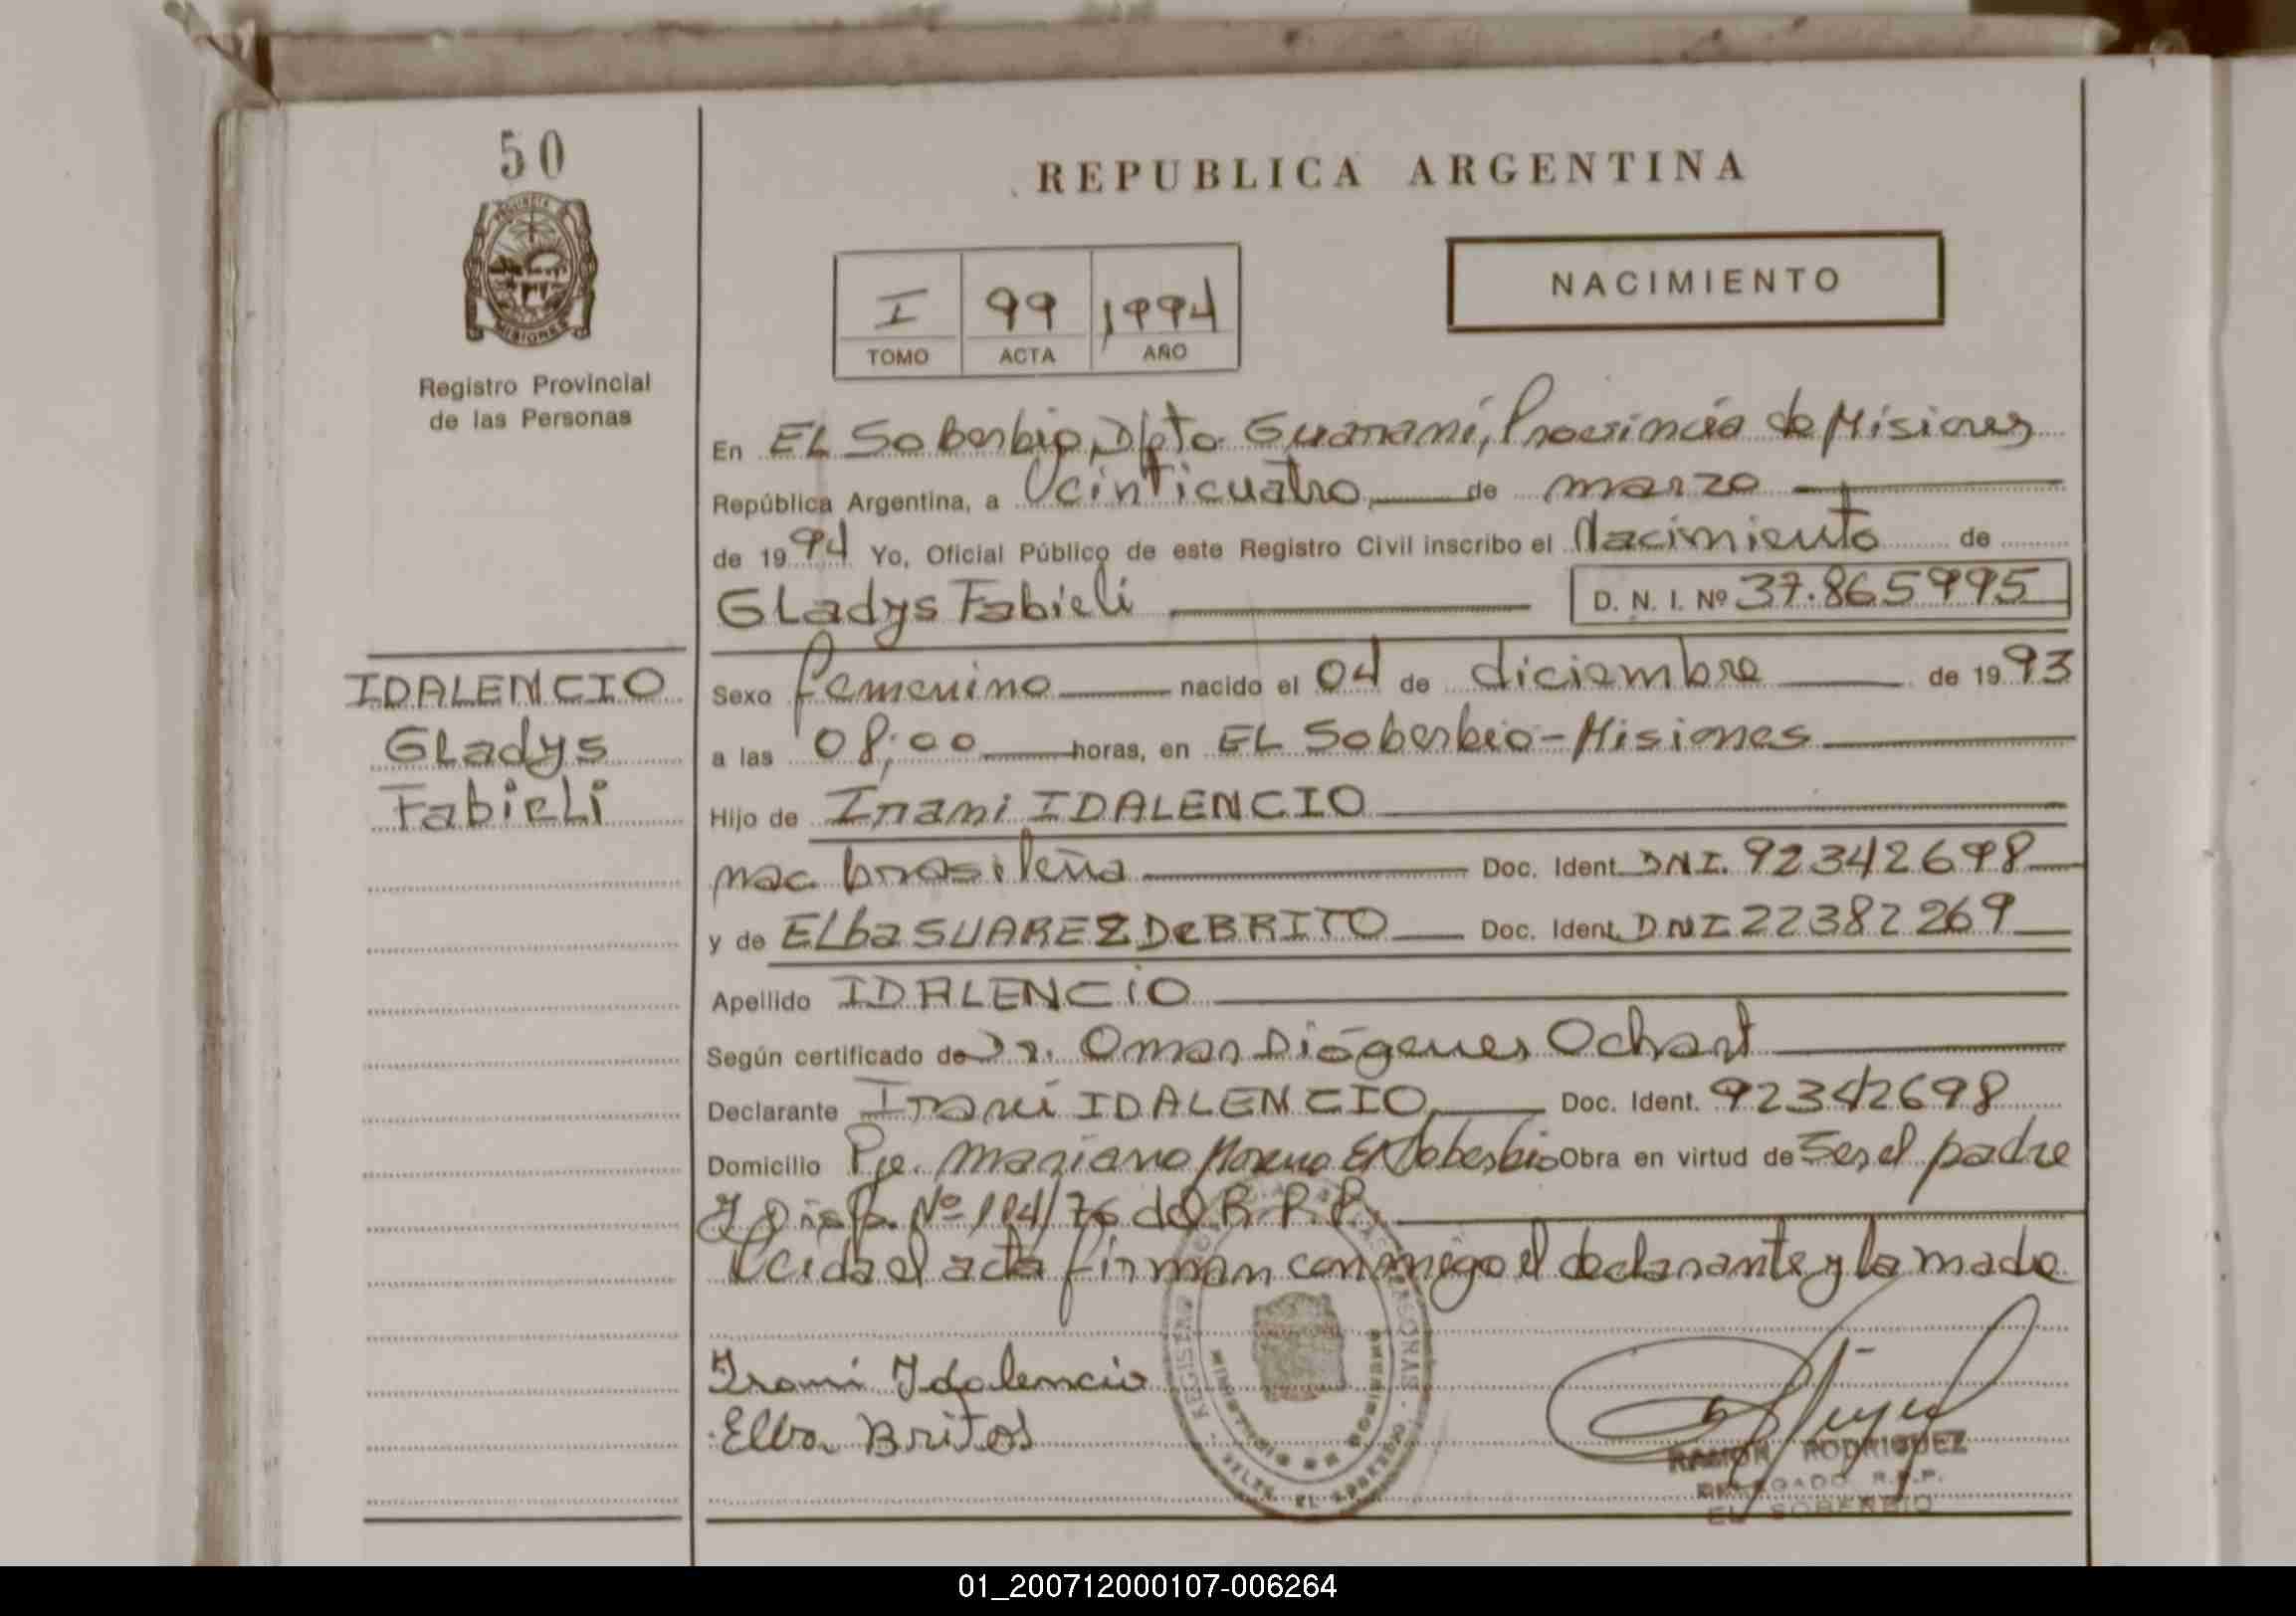 50
REPUBLICA ARGENTINA
PROVINCIA
MISIONES
Registro Provincial
de las Personas
I 99 1994
TOMO ACTA AÑO
NACIMIENTO
En EL Soberbio, Dpto. Guaraní, Provincia de Misiones
República Argentina, a Veinticuatro de marzo
de 1994 Yo, Oficial Público de este Registro Civil inscribo el Nacimiento de
Gladys Fabieli D. N. I. Nº 37.865995
IDALENCIO
Gladys
Fabieli
Sexo femenino nacido el 04 de diciembre de 1993
a las 08;00 horas, en EL Soberbio-Misiones
Hijo de Irani IDALENCIO
nac brasileña Doc. Ident. DNI. 92342698
y de Elba SUAREZ De BRITO Doc. Ident. DNI 22382269
Apellido IDALENCIO
Según certificado de Dr. Omar Diógenes Ochart
Declarante Irani IDALENCIO Doc. Ident. 92342698
Domicilio Pje. Mariano Moreno El Soberbio Obra en virtud de Ser el padre
y Disp. Nº 114/76 del R.P.P.
Leida el acta firman conmigo el declarante y la madre
Irani Idalencio
Elba Britos
RAMON RODRIGUEZ
DELEGADO R.P.P.
EL SOBERBIO
01_200712000107-006264